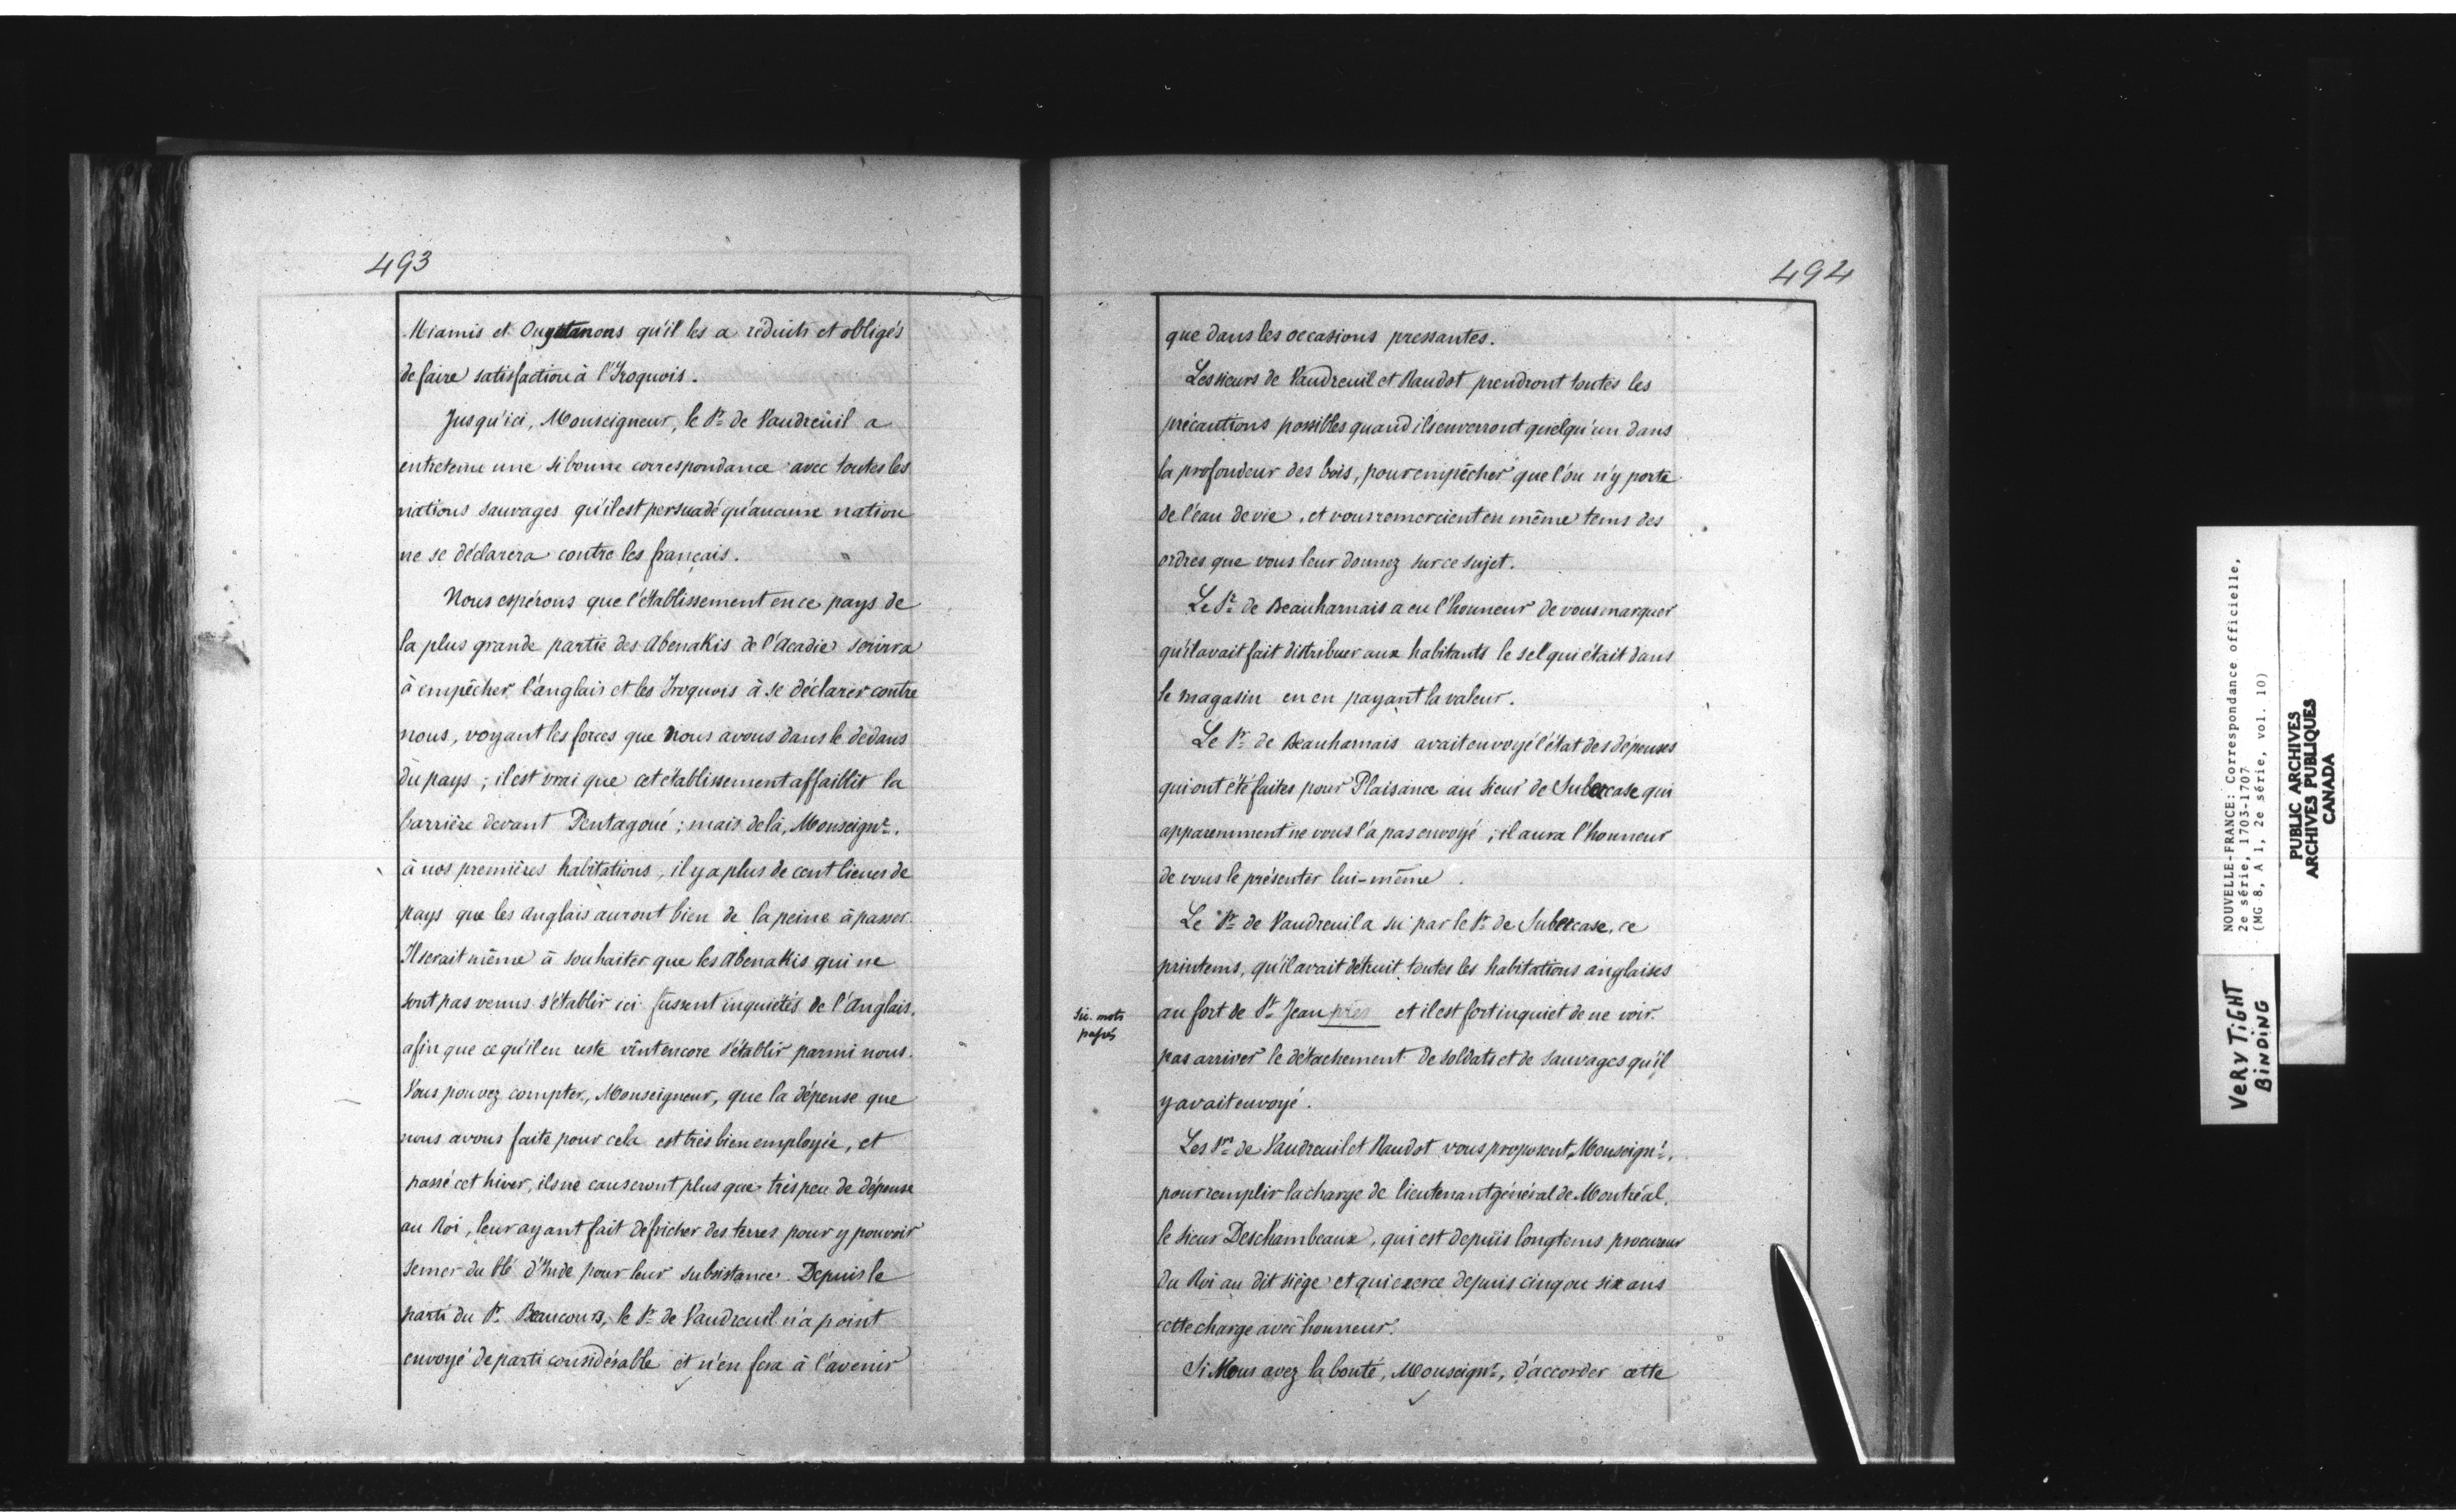 493
Miamis et Ouyatanons qu'il les a réduits et obligés
de faire satisfaction à l'Iroquois.
Jusqu'ici, Monseigneur, le Sr. de Vaudreuil a
entretenu une si bonne correspondance avec toutes les
nations sauvages qu'il est persuadé qu'aucune nation
ne se déclarera contre les français.
Nous espérons que l'établissement en ce pays de
la plus grande partie des Abenakis de l'Acadie servira
à empêcher l'anglais et les Iroquois à se déclarer contre
nous, voyant les forces que nous avons dans le dedans
du pays ; il est vrai que cet établissement affaiblit la
barrière devant Pentagoué ; mais de là, Monseignr.
à nos premières habitations, il y a plus de cent lieues de
pays que les anglais auront bien de la peine à passer.
Il serait même à souhaiter que les Abenakis qui ne
sont pas venus s'établir ici fussent inquiétés de l'Anglais,
afin que ce qu'il en reste vint encore s'établir parmi nous.
Vous pouvez compter, Monseigneur, que la dépense que
nous avons faite pour cela est très bien employée, et
passé cet hiver, ils ne causeront plus que très peu de dépense
au Roi, leur ayant fait défricher des terres pour y pouvoir
semer du blé d'Inde pour leur subsistance. Depuis le
parti du Sr. Beaucours, le Sr. de Vaudreuil n'a point
envoyé de parti considérable et n'en fera à l'avenir
494
que dans les occasions pressantes.
Les sieurs de Vaudreuil et Raudot prendront toutes les
précautions possibles quand ils enverront quelqu'un dans
la profondeur des bois, pour empêcher que l'on n'y porte
de l'eau de vie, et vous remercient en même tems des
ordres que vous leur donnez sur ce sujet.
Le Sr. de Beauharnais a eu l'honneur de vous marquer
qu'il avait fait distribuer aux habitants le sel qui était dans
le magasin en en payant la valeur.
Le Sr. de Beauharnais avait envoyé l'état des dépenses
qui ont été faites pour Plaisance au sieur de Subercase qui
apparemment ne vous l'a pas envoyé ; il aura l'honneur
de vous le présenter lui-même.
Le Sr. de Vaudreuil a su par le Sr. de Subercase, ce
printems, qu'il avait détruit toutes les habitations anglaises
sic. mots
passés
au fort de St. Jean près et il est fort inquiet de ne voir
pas arriver le détachement de soldats et de sauvages qu'il
y avait envoyé.
Les Srs. de Vaudreuil et Raudot vous proposent, Monseignr.,
pour remplir la charge de lieutenant général de Montréal,
le sieur Deschambeaux, qui est depuis longtems procureur
du Roi au dit siège et qui exerce depuis cinq ou six ans
cette charge avec honneur.
Si Vous avez la bonté, Monseignr., d'accorder cette
NOUVELLE-FRANCE: Correspondance officielle,
2e série, 1703-1707
(MG 8, A 1, 2e série, vol. 10)
PUBLIC ARCHIVES
ARCHIVES PUBLIQUES
CANADA
VERY TIGHT
BINDING